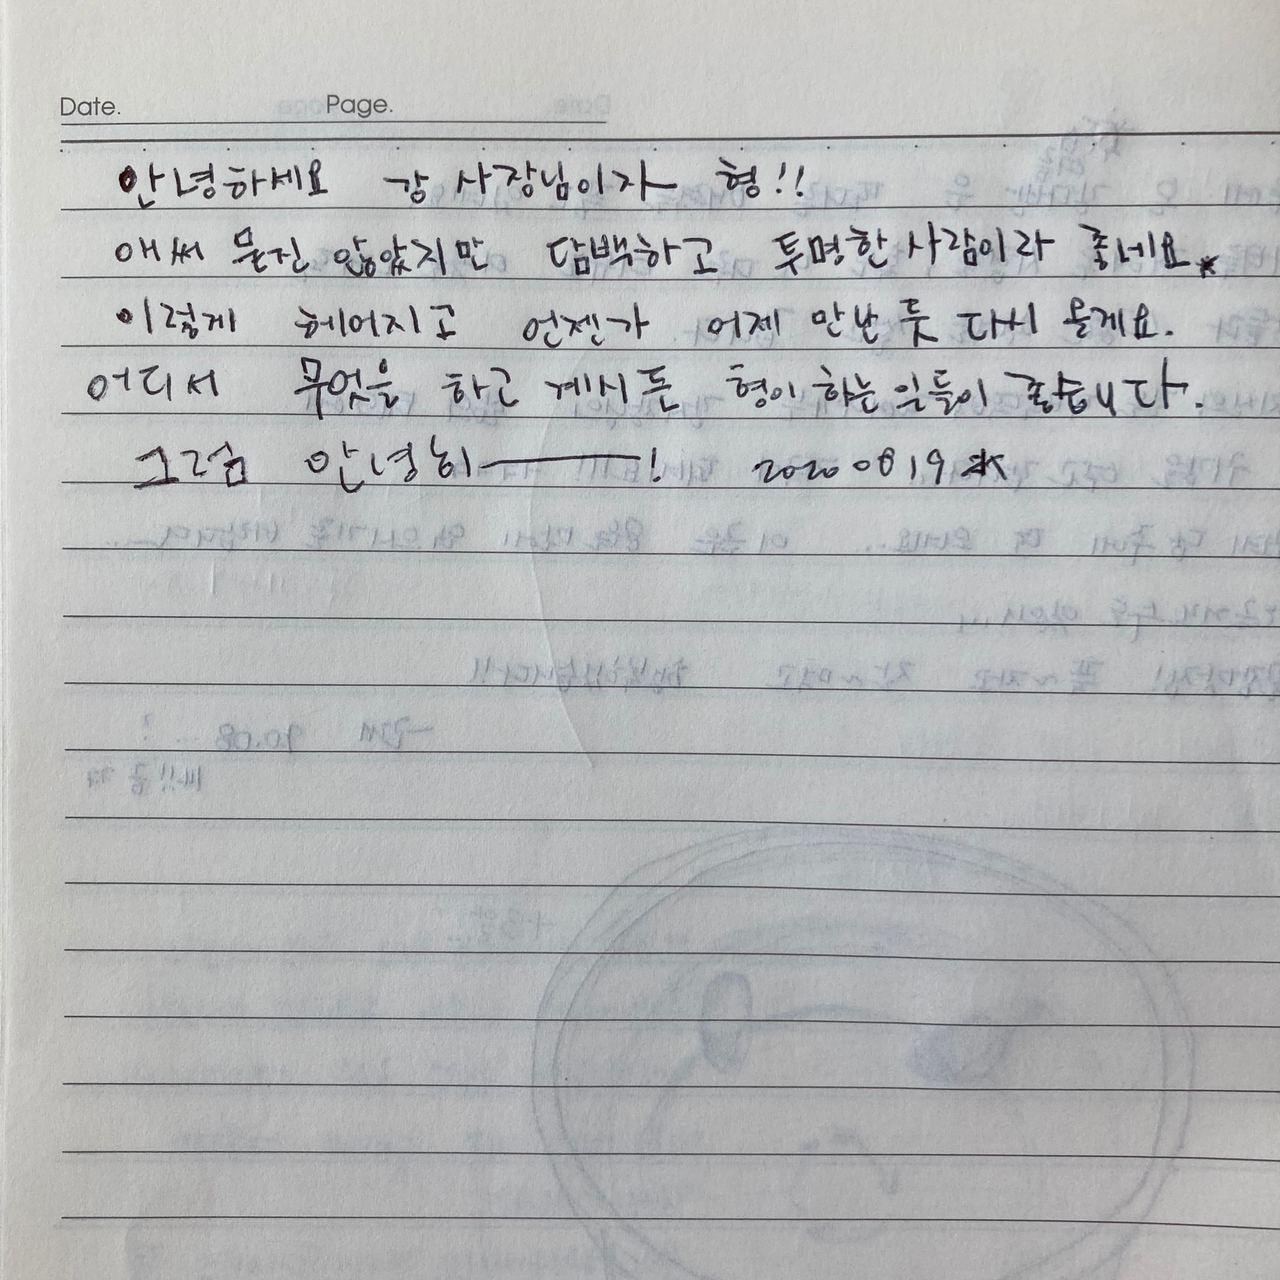 Date. Page.
안녕하세요 강 사장님이자 형!!
애써 묻진 않았지만 담백하고 투명한 사람이라 좋네요.*
이렇게 헤어지고 언젠가 어제 만난 듯 다시 올게요.
어디서 무엇을 하고 계시든 형이 하는 일들이 좋습니다.
그럼 안녕히―! 2020 08 19